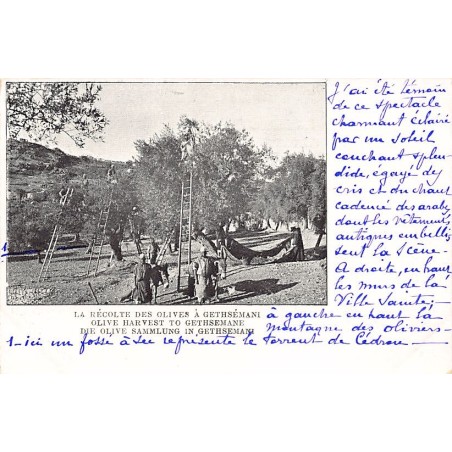 J'ai été témoin
de ce spectacle
charmant éclairé
par un soleil
couchant splen-
dide, égayé des
cris et du chant
cadencé des arabes
dont les vêtements
antiques embellis-
sent la scène.
A droite, en haut
les murs de la
Ville Sainte;
à gauche en haut la
montagne des oliviers-
1-
LA RÉCOLTE DES OLIVES À GETHSÉMANI
OLIVE HARVEST TO GETHSEMANE
DIE OLIVE SAMMLUNG IN GETHSEMANI
1-ici un fosse à sec représente le torrent de Cédron-